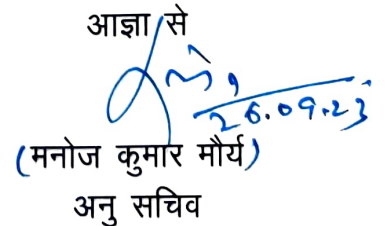 आज्ञा से
26.09.23
(मनोज कुमार मौर्य)
अनु सचिव